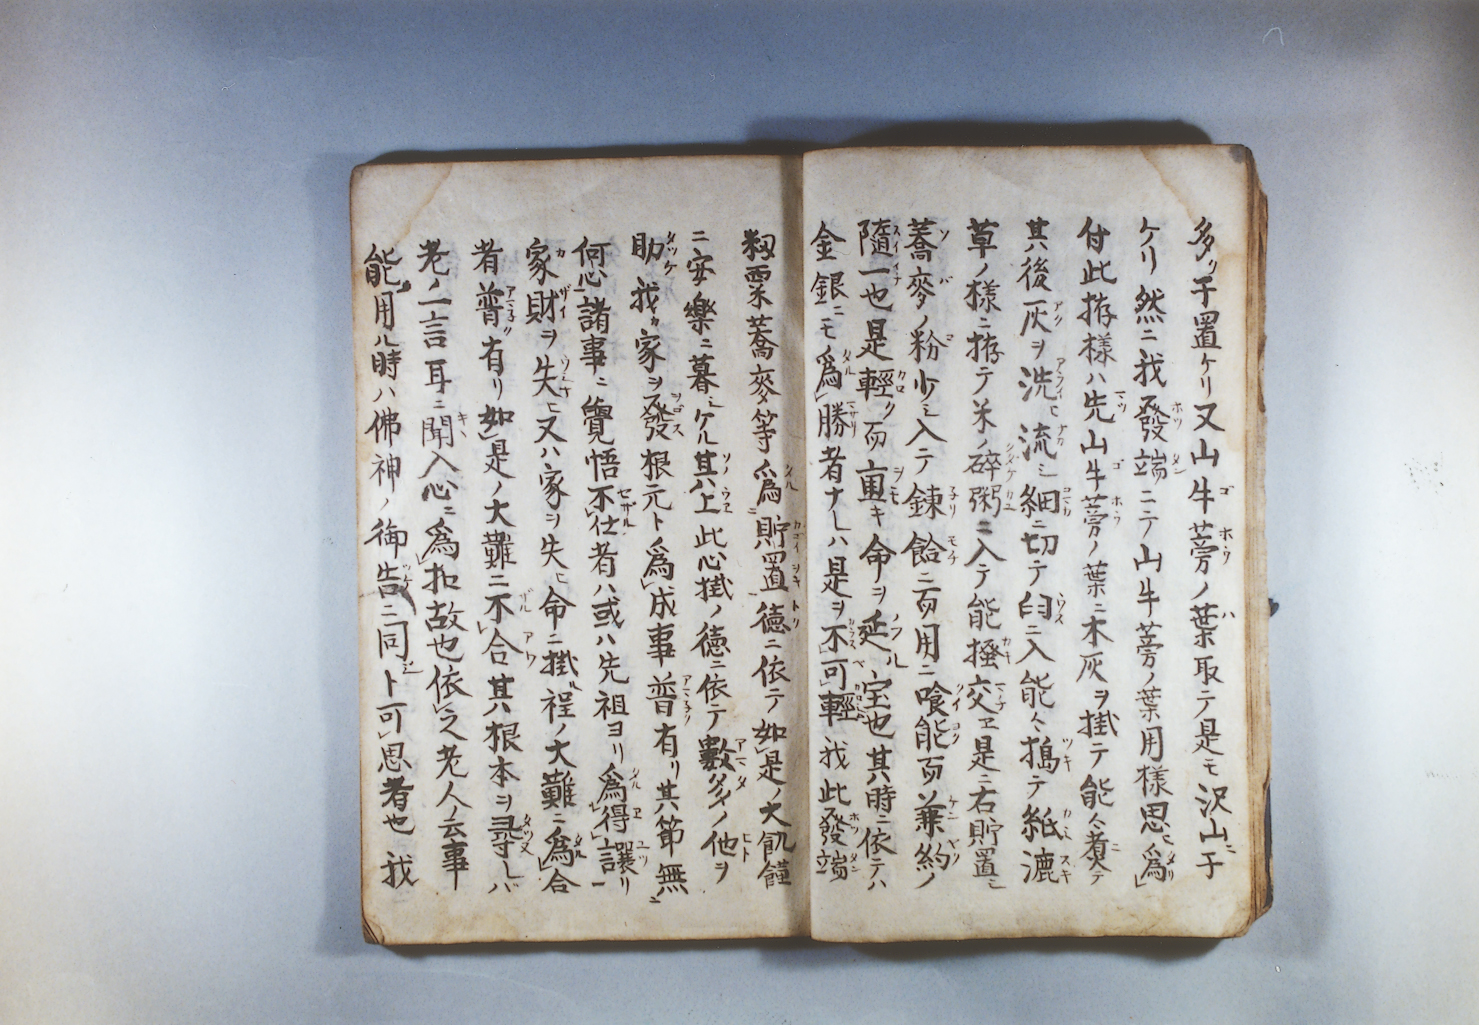 多ッ干置ケリ又山牛蒡ノ葉取テ是モ沢山ニ干
ケリ然ニ我發端ニテ山牛蒡ノ葉用様思ヒ為
付此拵様ハ先山牛蒡ノ葉ニ木灰ヲ掛テ能々煮テ
其後灰ヲ洗ヒ流シ細ニ切テ臼ニ入能々搗テ紙漉
草ノ様ニ拵テ米ノ碎粥ニ入テ能掻交ヱ是ニ右貯置シ
蕎麥ノ粉少シ入テ錬餄ニ而用ニ喰能而兼約ノ
隨一也是輕ク而重キ命ヲ延ル宝也其時ニ依テハ
金銀ニモ為勝者ナレハ是ヲ不可輕我此發端
籾粟蕎麥等為貯置徳ニ依テ如是ノ大飢饉
ニ安樂ニ暮シケル其上此心掛ノ徳ニ依テ數多ノ他ヲ
助我カ家ヲ發根元ト為成事普有リ其節無
何心諸事ニ覺悟不仕者ハ或ハ先祖ヨリ為得譲リ
家財ヲ失ヒ又ハ家ヲ失ヒ命ニ掛ル程ノ大難ニ為合
者普有リ如是ノ大難ニ不合其根本ヲ尋レバ
老ノ一言耳ニ聞入心ニ為扣故也依之老人ノ云事
能用ル時ハ佛神ノ御告ニ同シト可思者也我